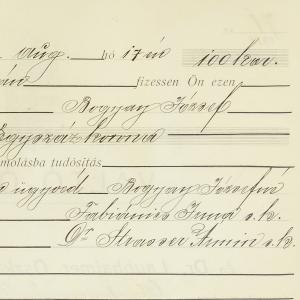 Aug. hó 17 én 100 kor.
fizessen Ön ezen
Bogyay József
Egyszáz korona
molásba tudósítás
ügyvéd Bogyay Józsefné
Fabiánics Imma s.k.
Dr Strasser Armin s.k.